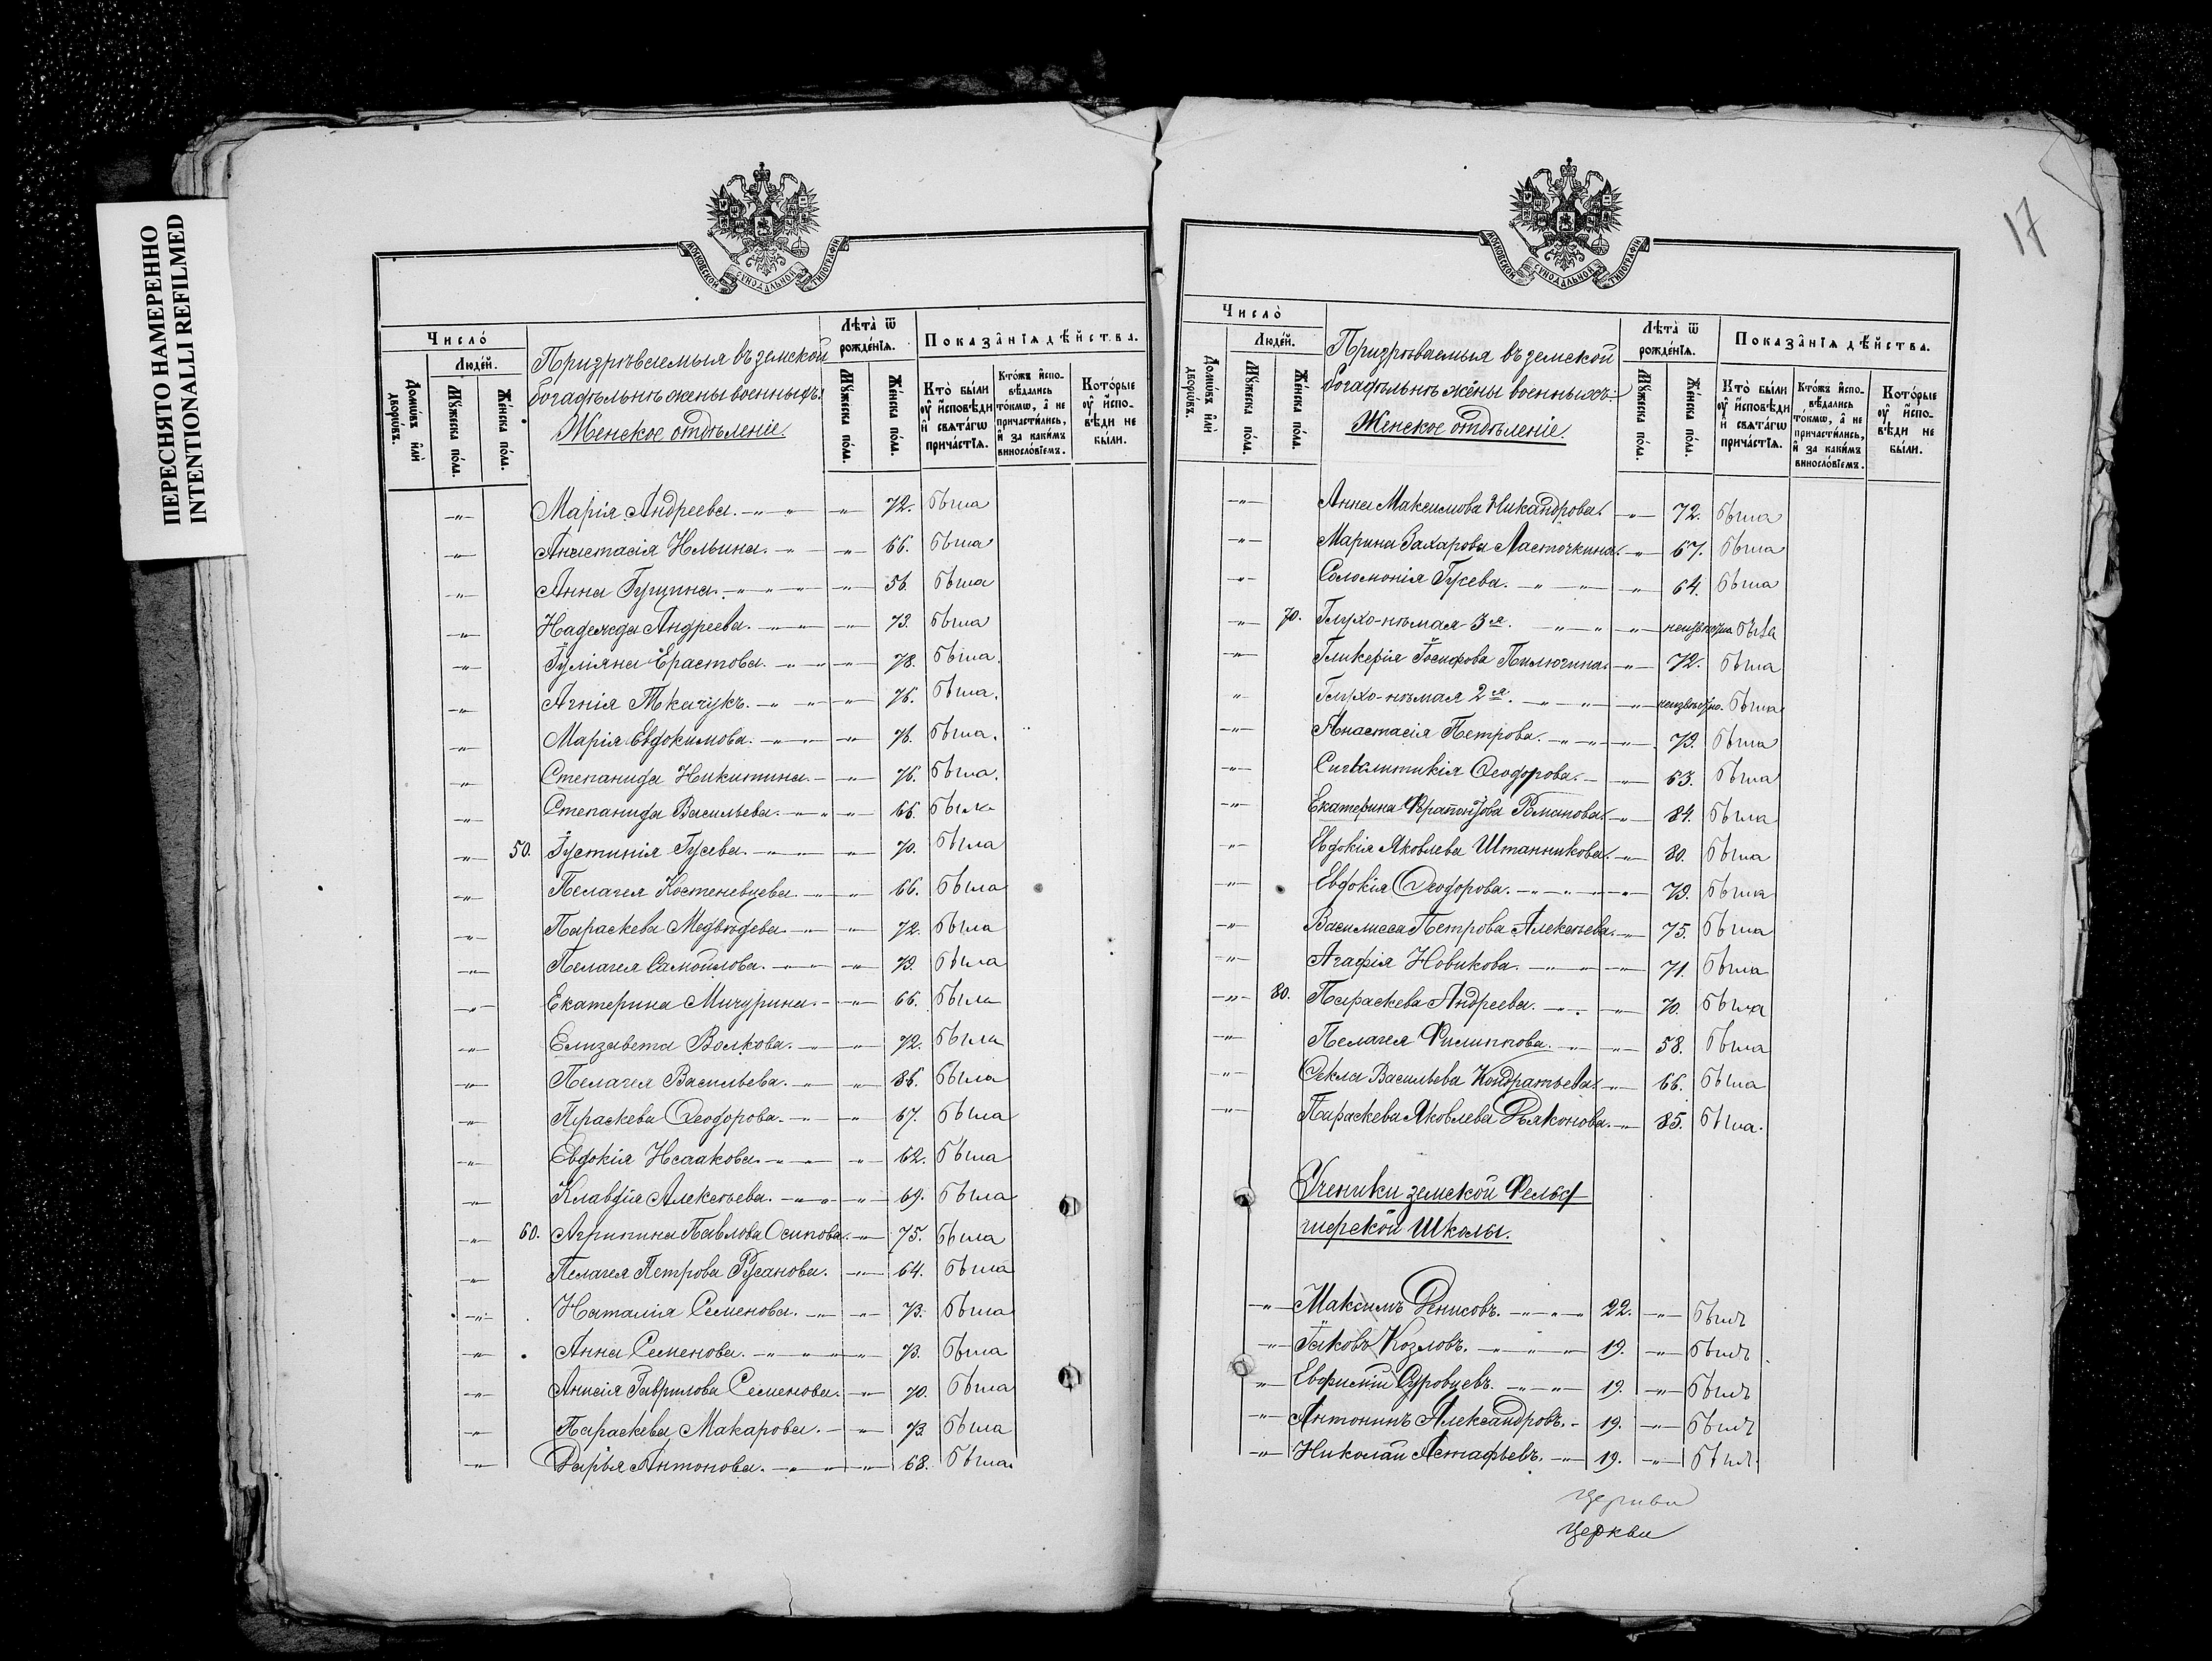 ПЕРЕСНЯТО НАМЕРЕННО
INTENTIONALLI REFILMED
МОСКОВСКОЙ СѴНОДАЛЬНОЙ ТИПОГРАФІИ
Число̀
Людей.
Домѡвъ и҆лѝ дворѡвъ.
Мꙋжеска пола.
Женска пола.
Призрѣваемыя въ земской
богадѣльнѣ жены военныхъ:
Женское отдѣленіе.
Лѣта̀ ѿ рожденїѧ.
Мꙋжеска пола.
Женска пола.
Показанїѧ дѣйства.
Кто̀ были ᲂу҆ и҆сповѣди и҆ свѧтагѡ причастїѧ.
Ктожъ и҆сповѣдались токмѡ, а҆ не причастились, и҆ за какимъ винословїемъ.
Которые ᲂу҆ и҆сповѣди не были.
-„- Марія Андреева. -„- „ -„- 72. была
-„- Анастасія Ильина. -„- -„- 66. была
-„- Анна Гущина. -„- „ -„- 56. была
-„- Надежда Андреева. -„- -„- 73. была
-„- Іуліяна Ерастова. -„- -„- 78. была.
-„- Агнія Ткачукъ. -„- „ -„- 76. была.
-„- Марія Евдокимова. -„- -„- 76. была.
-„- Степанида Никитина. - -„- 76. была.
-„- Степанида Васильева. -„- -„- 66. была
-„- 50. Іустинія Гусева. -„- -„- 70. была
-„- Пелагея Костеневцева. -„- -„- 66. была
-„- Параскева Медвѣдева. -„- -„- 72. была
-„- Пелагея Самойлова. -„- -„- 73. была
-„- Екатерина Мичурина. - -„- 66. была
-„- Елизавета Волкова. -„- -„- 72. была
-„- Пелагея Васильева. -„- -„- 86. была
-„- Параскева Ѳеодорова. -„- -„- 67. была
-„- Евдокія Исаакова. -„- -„- 62. была
-„- Клавдія Алексѣева. -„- -„- 69. была
-„- 60. Агрипина Павлова Осипова. -„- 75. была
-„- Пелагея Петрова Русанова. -„- 64. была
-„- Наталія Семенова. -„- -„- 73. была
-„- Анна Семенова. -„- „ -„- 73. была
-„- Анисія Гаврилова Семенова. -„- 70. была
-„- Параскева Макарова. - -„- 73. была
-„- Дарья Антонова. -„- -„- 68. была.
17
МОСКОВСКОЙ СѴНОДАЛЬНОЙ ТИПОГРАФІИ
Число̀
Людей.
Домѡвъ и҆лѝ дворѡвъ.
Мꙋжеска пола.
Женска пола.
Призрѣваемыя въ земской
богадѣльнѣ жены военныхъ:
Женское отдѣленіе.
Лѣта̀ ѿ рожденїѧ.
Мꙋжеска пола.
Женска пола.
Показанїѧ дѣйства.
Кто̀ были ᲂу҆ и҆сповѣди и҆ свѧтагѡ причастїѧ.
Ктожъ и҆сповѣдались токмѡ, а҆ не причастились, и҆ за какимъ винословїемъ.
Которые ᲂу҆ и҆сповѣди не были.
-„- Анна Максимова Никандрова. -„- 72. была
-„- Марина Захарова Ласточкина. -„- 67. была
-„- Соломонія Гусева. -„- -„- 64. была
-„- 70. Глухо-нѣмая 3я. -„- „ -„- неизвѣстна была
-„- Гликерія Іосифова Пилюгина. -„- 72. была
-„- Глухо-нѣмая 2я. -„- -„- неизвѣстно. была
-„- Анастасія Петрова. -„- -„- 73. была
-„- Сигклитикія Ѳеодорова. - -„- 63. была
-„- Екатерина Ферапонтова Романова. -„- 84. была
-„- Евдокія Яковлева Штанникова. -„- 80. была
-„- Евдокія Ѳеодорова. -„- -„- 73. была
-„- Василисса Петрова Алексѣева. -„- 75. была
-„- Агафія Новикова. -„- -„- 71. была
-„- 80. Параскева Андреева. -„- -„- 70. была
-„- Пелагея Филиппова. -„- -„- 58. была
-„- Ѳекла Васильева Кондратьева. -„- 66. была
-„- Параскева Яковлева Дьяконова. -„- 85. была.
Ученики земской Фельд
шерской Школы.
-„- Максимъ Денисовъ. -„- 22. -„- былъ
-„- Іаковъ Козловъ. -„- 19. -„- былъ
-„- Евфимій Суровцевъ. -„- 19. -„- былъ
-„- Антонинъ Александровъ. - 19. -„- былъ
-„- Николай Астафьевъ. -„- 19. -„- былъ.
Церкви
Церкви